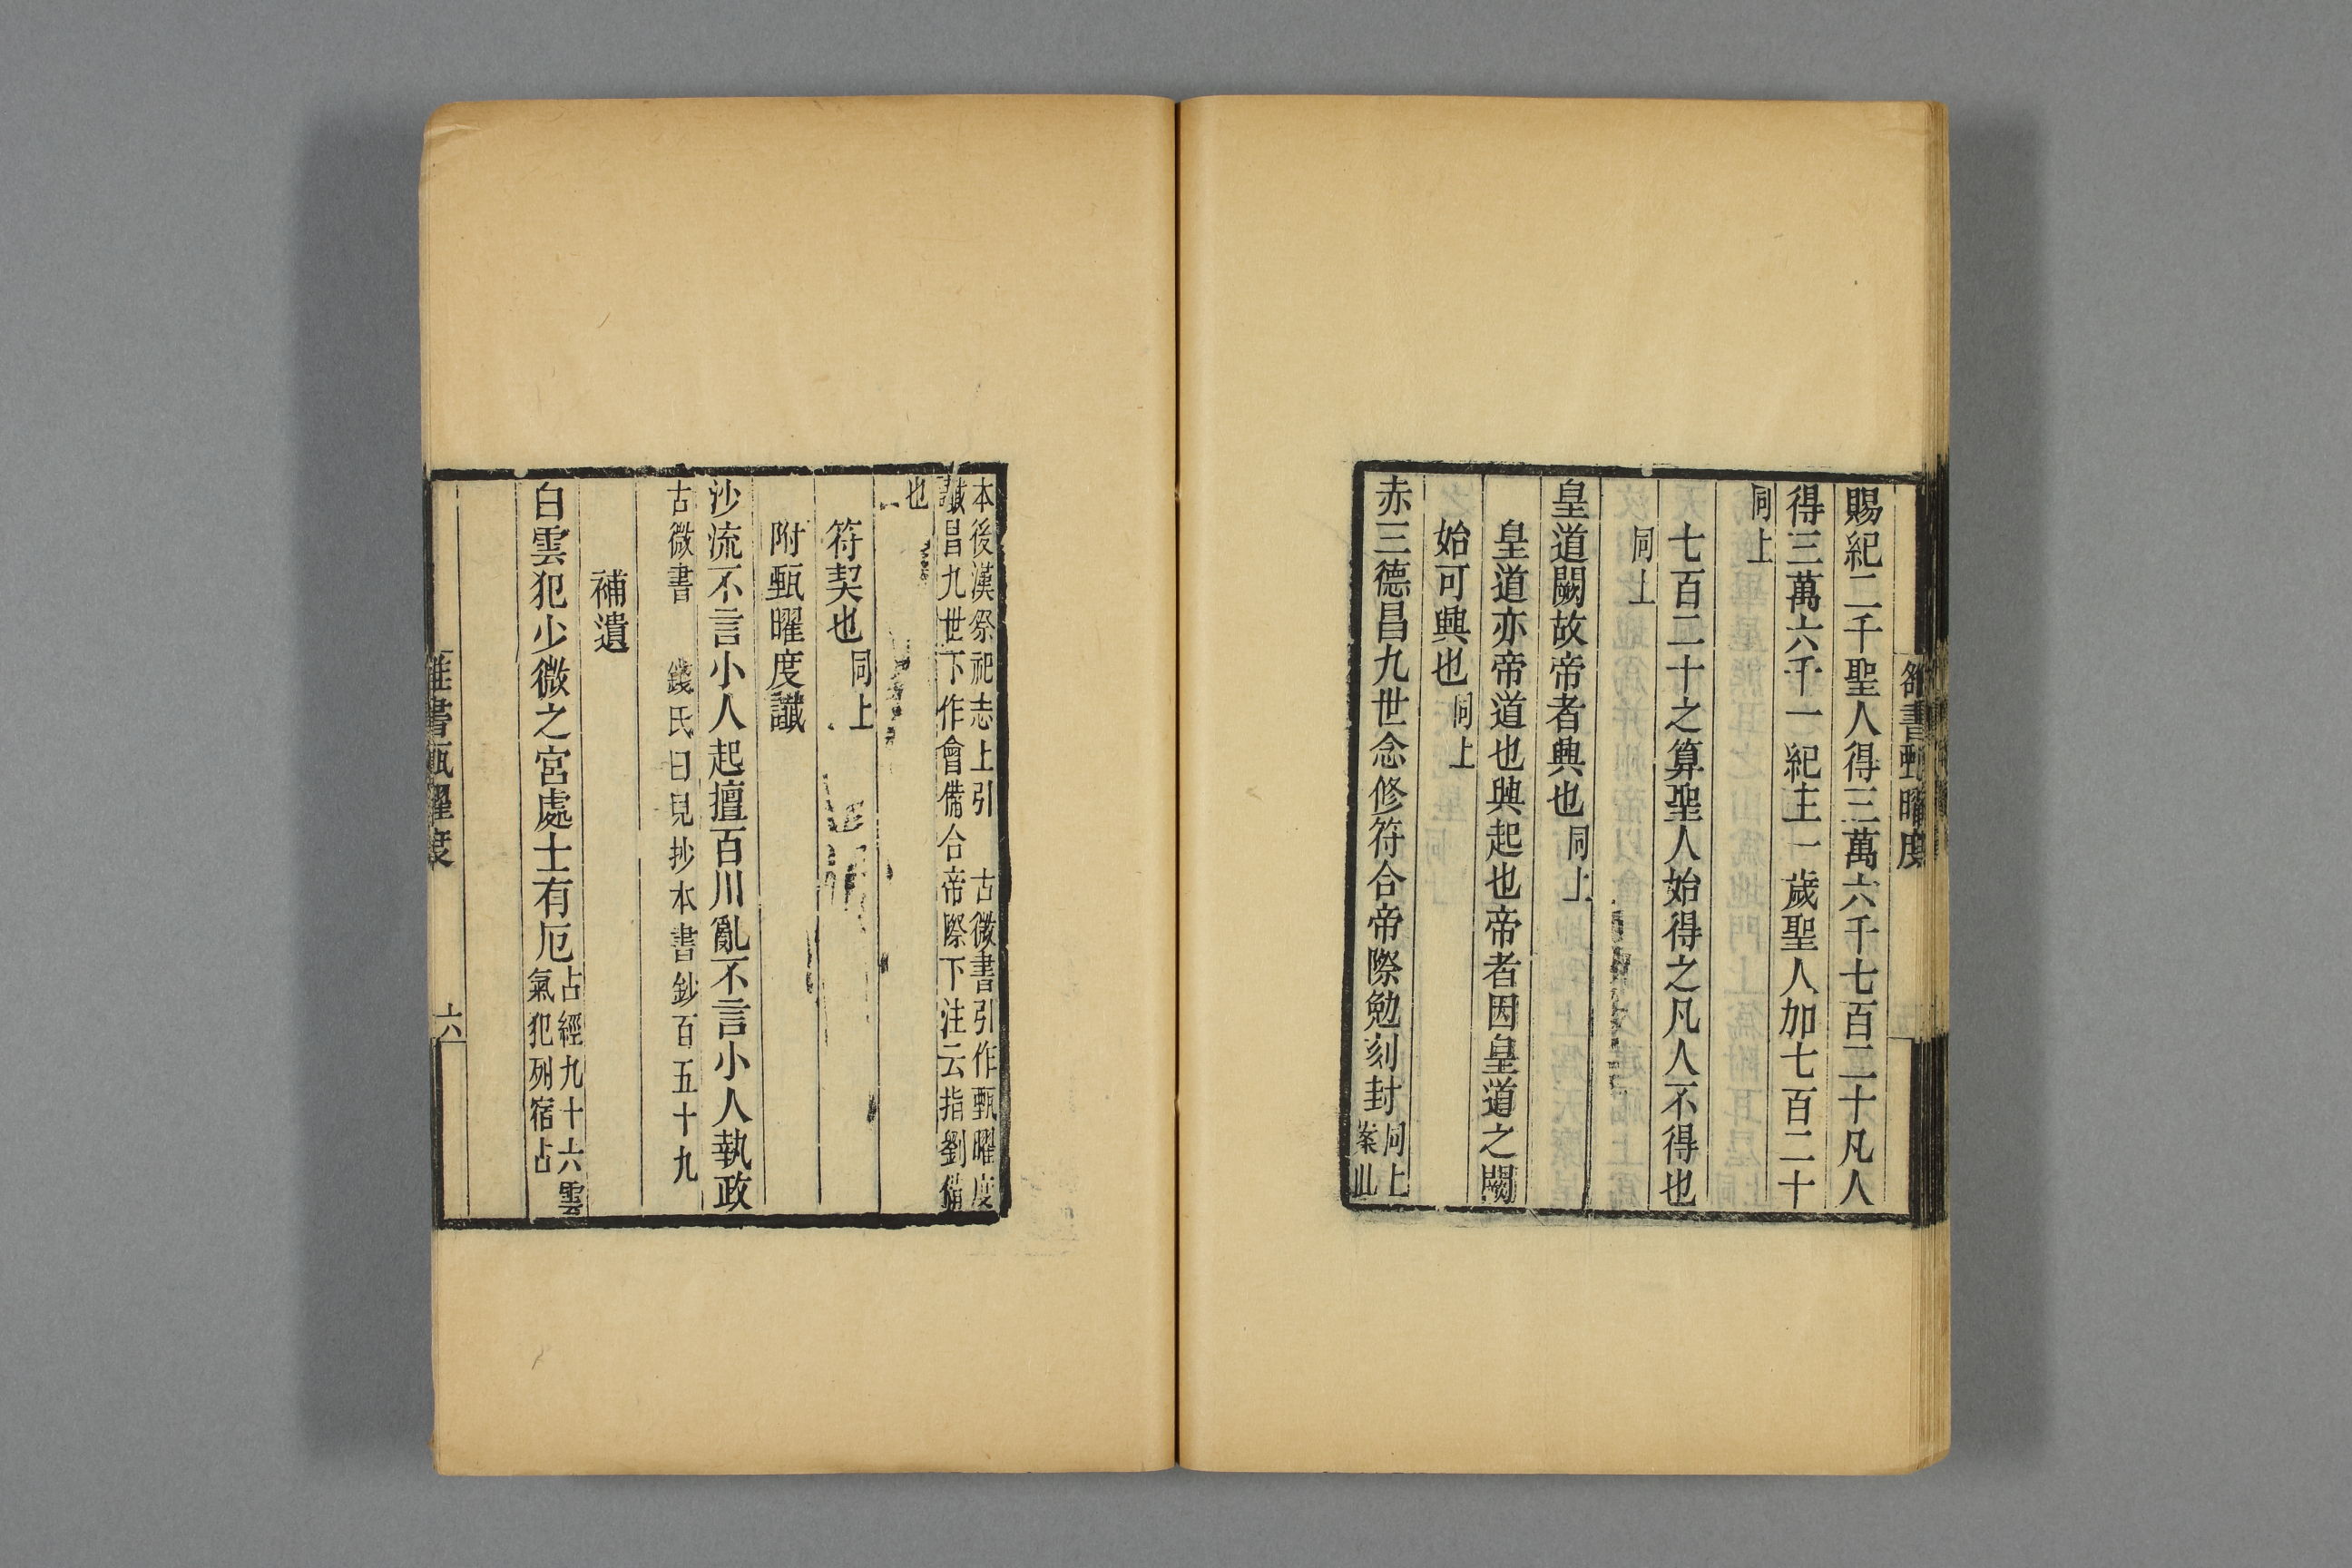 雒書甄曜度
賜紀二千聖人得三萬六千七百二十凡人
得三萬六千一紀主一歲聖人加七百二十
同上
七百二十之算聖人始得之凡人不得也
同上
皇道闕故帝者興也同上
皇道亦帝道也興起也帝者因皇道之闕
始可興也同上
赤三德昌九世念修符合帝際勉刻封同上
案此
本後漢祭祀志上引 古微書引作甄曜度
讖昌九世下作會備合帝際下注云指劉備
也
符契也同上
附甄曜度讖
沙流不言小人起擅百川亂不言小人執政
古微書 錢氏日見抄本書鈔百五十九
補遺
白雲犯少微之宮處士有厄占經九十六雲
氣犯列宿占
雒書甄曜度 六